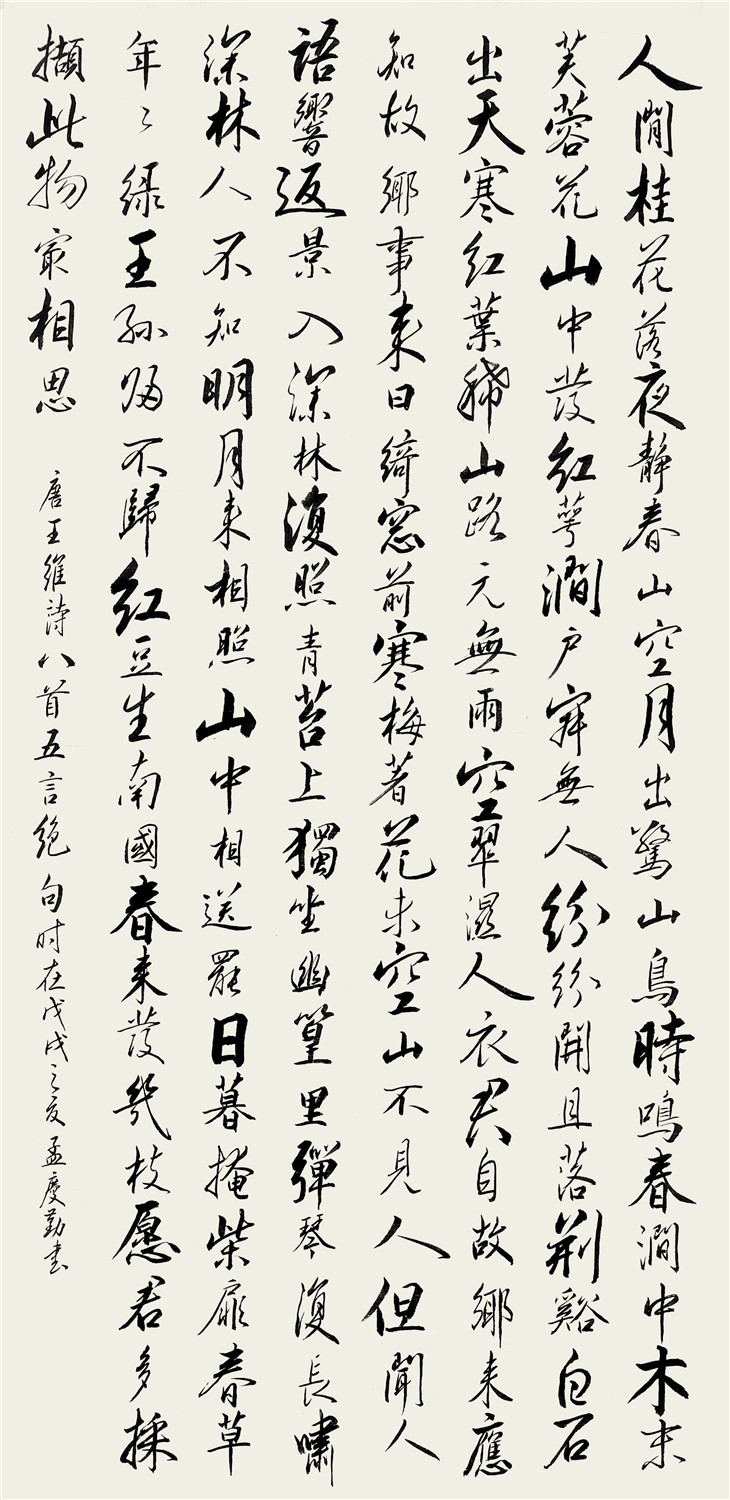 人閒桂花落夜靜春山空月出驚山鳥時鳴春澗中木末
芙蓉花山中發紅萼澗戶寂無人紛紛開且落荊谿白石
出天寒紅葉稀山路元無雨空翠濕人衣君自故鄉来應
知故鄉事来日綺窓前寒梅著花未空山不見人但聞人
語響返景入深林復照青苔上獨坐幽篁里彈琴復長嘯
深林人不知明月来相照山中相送罷日暮掩柴扉春草
年々綠王孫归不歸紅豆生南國春来發幾枝愿君多採
擷此物最相思
唐王維詩八首五言絶句时在戊戌之夏孟慶勤书